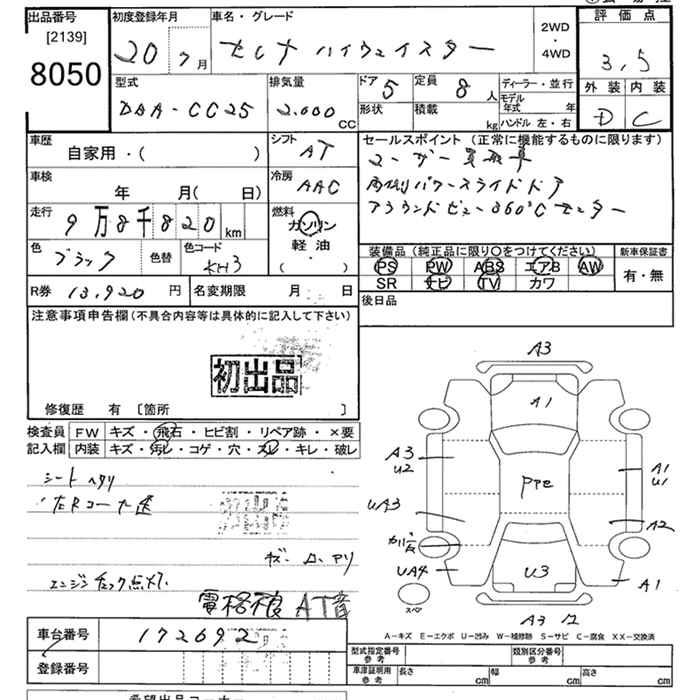 出品番号 初度登録年月 車名・グレード 2WD ・ 4WD 評価点
[2139]
8050
20 7月 セレナ ハイウェイスター 3.5
型式 排気量 ドア 5 定員 8人 ディーラー・並行 外装 内装
DBA-CC25 2.000cc 形状 積載 kg モデル年式 年 ハンドル 左・右 D C
車歴 自家用・( ) シフト AT セールスポイント (正常に機能するものに限ります)
ユーザー買取車
車検 年 月( 日) 冷房 AAC 両側パワースライドドア
走行 9万8千820km 燃料 ガソリン 軽油 ・( ) アラウンドビュー360℃モニター
色 ブラック 色替 色コード KH3
装備品 (純正品に限り○をつけてください) 新車保証書
PS PW ABS エアB AW 有・無
SR ナビ TV カワ
R券 13,920円 名変期限 月 日 後日品
注意事項申告欄(不具合内容等は具体的に記入して下さい)
初出品
修復歴 有 [箇所 ]
検査員 FW キズ・飛石・ヒビ割・リペア跡・×要
記入欄 内装 キズ・汚レ・コゲ・穴・スレ・キレ・破レ
シートヘタリ
エンジンチェック点灯
電格検 AT音
A3
A1
A3
U2
A1
U1
PPE
UA3
A2
カバー欠
UA4
U3
A1
スペア
A3
A-キズ E-エクボ U-凹み W-補修跡 S-サビ C-腐食 XX-交換済
車台番号 172692
登録番号
型式指定番号 参考 類別区分番号 参考
車庫証明用 参考 長さ cm 幅 cm 高さ cm
希望出品コーナー